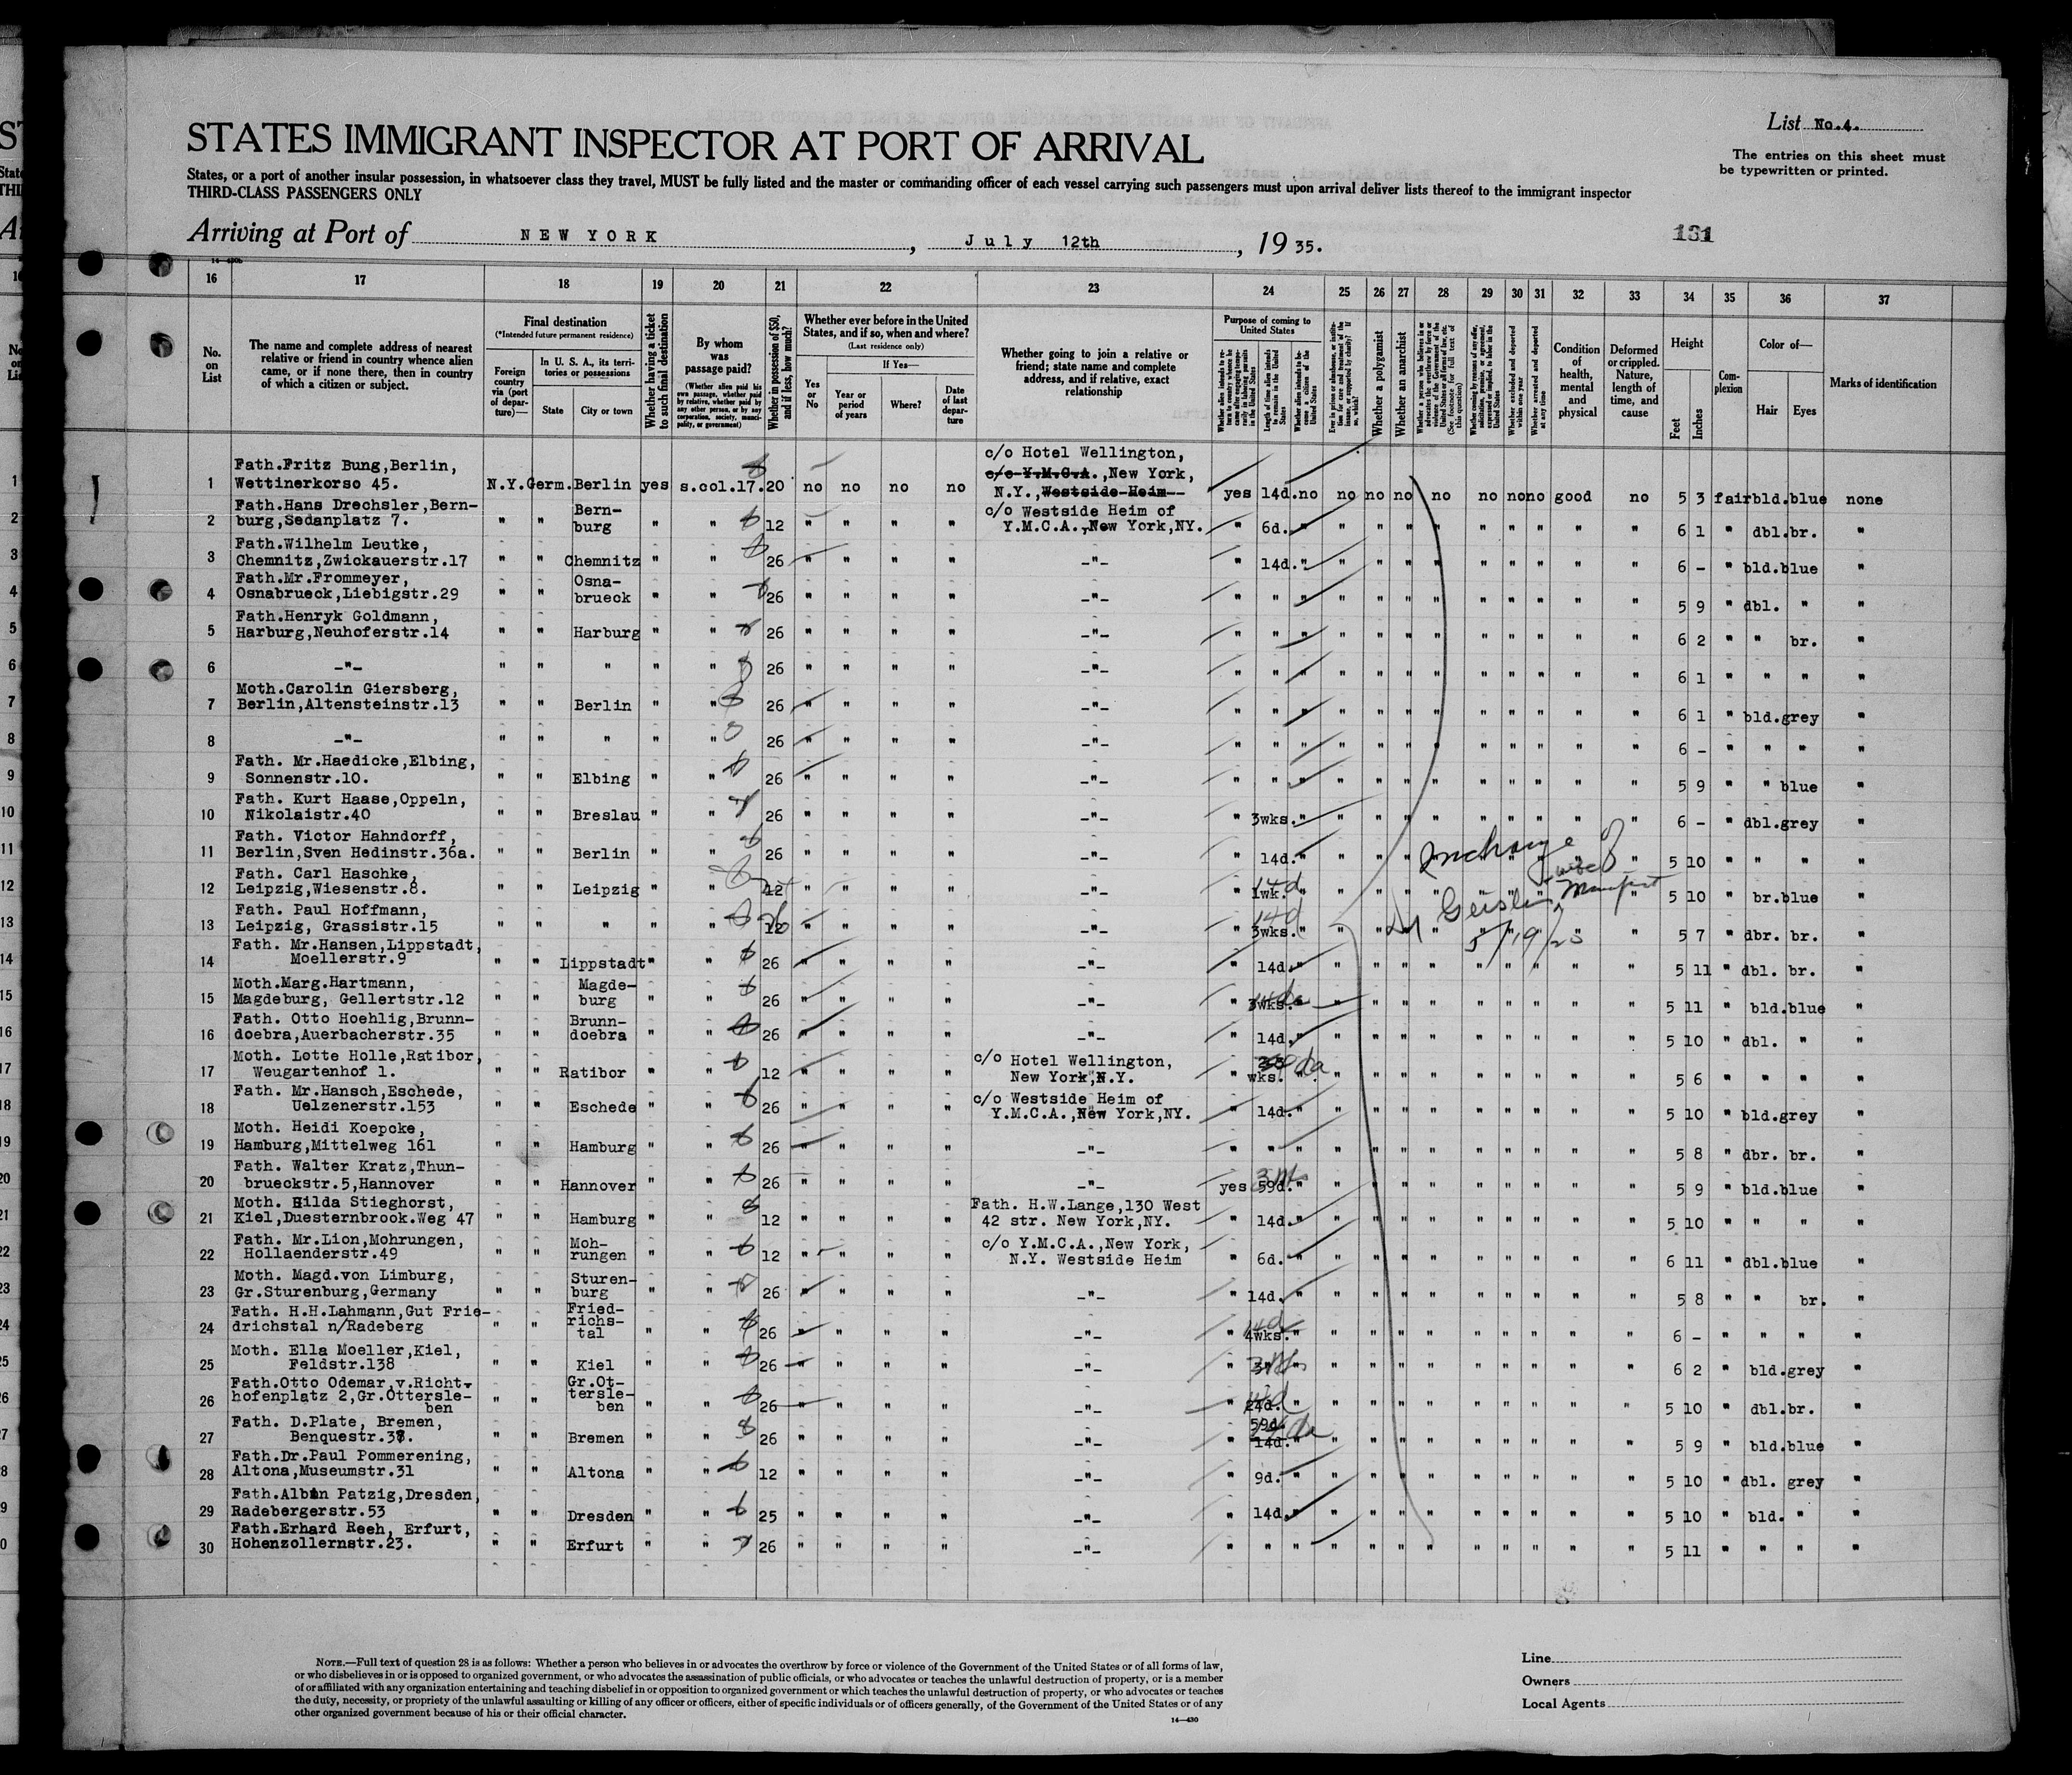 List No.4.
The entries on this sheet must
be typewritten or printed.
STATES IMMIGRANT INSPECTOR AT PORT OF ARRIVAL
States, or a port of another insular possession, in whatsoever class they travel, MUST be fully listed and the master or commanding officer of each vessel carrying such passengers must upon arrival deliver lists thereof to the immigrant inspector
THIRD-CLASS PASSENGERS ONLY
Arriving at Port of NEW YORK, July 12th, 1935.
131
16 17 18 19 20 21 22 23 24 25 26 27 28 29 30 31 32 33 34 35 36 37
No. on List
The name and complete address of nearest relative or friend in country whence alien came, or if none there, then in country of which a citizen or subject.
Final destination
(*Intended future permanent residence)
Foreign country via (port of departure)—
In U. S. A., its territories or possessions
State
City or town
Whether having a ticket to such final destination
By whom was passage paid?
(Whether alien paid his own passage, whether paid by relative, whether paid by any other person, or by any corporation, society, municipality, or government)
Whether in possession of $50, and if less, how much?
Whether ever before in the United States, and if so, when and where?
(Last residence only)
Yes or No
If Yes—
Year or period of years
Where?
Date of last departure
Whether going to join a relative or friend; state name and complete address, and if relative, exact relationship
Purpose of coming to United States
Length of time alien intends to remain in the United States
Whether alien intends to become a citizen of the United States
Whether a polygamist
Whether an anarchist
Condition of health, mental and physical
Deformed or crippled. Nature, length of time, and cause
Height
Feet
Inches
Complexion
Color of—
Hair
Eyes
Marks of identification
1 Fath.Fritz Bung,Berlin,
Wettinerkorso 45. N.Y. Germ. Berlin yes s.col.17.20 no no no no c/o Hotel Wellington,
c/o Y.M.C.A.,New York,
N.Y.,Westside Heim-- yes 14d. no no no no no no no no good no 5 3 fair bld. blue none
2 Fath.Hans Drechsler,Bern-
burg,Sedanplatz 7. " " Bern-
burg " " 12 " " " " c/o Westside Heim of
Y.M.C.A.,New York,NY. " 6d. " " " " " " " " " " 6 1 " dbl. br. "
3 Fath.Wilhelm Leutke,
Chemnitz,Zwickauerstr.17 " " Chemnitz " " 26 " " " " -"- " 14d. " " " " " " " " " " 6 - " bld. blue "
4 Fath.Mr.Frommeyer,
Osnabrueck,Liebigstr.29 " " Osna-
brueck " " 26 " " " " -"- " " " " " " " " " " " " 5 9 " dbl. " "
5 Fath.Henryk Goldmann,
Harburg,Neuhoferstr.14 " " Harburg " " 26 " " " " -"- " " " " " " " " " " " " 6 2 " " br. "
6 -"- " " " " " 26 " " " " -"- " " " " " " " " " " " " 6 1 " " " "
7 Moth.Carolin Giersberg,
Berlin,Altensteinstr.13 " " Berlin " " 26 " " " " -"- " " " " " " " " " " " " 6 1 " bld. grey "
8 -"- " " " " " 26 " " " " -"- " " " " " " " " " " " " 6 - " " " "
9 Fath. Mr.Haedicke,Elbing,
Sonnenstr.10. " " Elbing " " 26 " " " " -"- " " " " " " " " " " " " 5 9 " " blue "
10 Fath. Kurt Haase,Oppeln,
Nikolaistr.40 " " Breslau " " 26 " " " " -"- " 3wks. " " " " " " " " " " 6 - " dbl. grey "
11 Fath. Victor Hahndorff,
Berlin,Sven Hedinstr.36a. " " Berlin " " 26 " " " " -"- " 14d. " " " " " " " " " " 5 10 " " " "
12 Fath. Carl Haschke,
Leipzig,Wiesenstr.8. " " Leipzig " " 12 " " " " -"- " 14d 1wk. " " " " " " " " " " 5 10 " br. blue "
13 Fath. Paul Hoffmann,
Leipzig, Grassistr.15 " " " " " 12 26 " " " " -"- " 14d 3wks. " " " " " " " " " " 5 7 " dbr. br. "
14 Fath. Mr.Hansen,Lippstadt,
Moellerstr.9 " " Lippstadt " " 26 " " " " -"- " 14d. " " " " " " " " " " 5 11 " dbl. br. "
15 Moth.Marg.Hartmann,
Magdeburg, Gellertstr.12 " " Magde-
burg " " 26 " " " " -"- " 3wks. " " " " " " " " " " 5 11 " bld. blue "
16 Fath. Otto Hoehlig,Brunn-
doebra,Auerbacherstr.35 " " Brunn-
doebra " " 26 " " " " -"- " 14d. " " " " " " " " " " 5 10 " dbl. " "
17 Moth. Lotte Holle,Ratibor,
Weugartenhof 1. " " Ratibor " " 12 " " " " c/o Hotel Wellington,
New York,N.Y. " wks. " " " " " " " " " " 5 6 " " " "
18 Fath. Mr.Hansch,Eschede,
Uelzenerstr.153 " " Eschede " " 26 " " " " c/o Westside Heim of
Y.M.C.A.,New York,NY. " 14d. " " " " " " " " " " 5 10 " bld. grey "
19 Moth. Heidi Koepcke,
Hamburg,Mittelweg 161 " " Hamburg " " 26 " " " " -"- " " " " " " " " " " " " 5 8 " dbr. br. "
20 Fath. Walter Kratz,Thun-
brueckstr.5,Hannover " " Hannover " " 26 " " " " -"- yes 59d. " " " " " " " " " " 5 9 " bld. blue "
21 Moth. Hilda Stieghorst,
Kiel,Duesternbrook.Weg 47 " " Hamburg " " 12 " " " " Fath. H.W.Lange,130 West
42 str. New York,NY. " 14d. " " " " " " " " " " 5 10 " " " "
22 Fath. Mr.Lion,Mohrungen,
Hollaenderstr.49 " " Moh-
rungen " " 12 " " " " c/o Y.M.C.A.,New York,
N.Y. Westside Heim " 6d. " " " " " " " " " " 6 11 " dbl. blue "
23 Moth. Magd.von Limburg,
Gr.Sturenburg,Germany " " Sturen-
burg " " 26 " " " " -"- " 14d. " " " " " " " " " " 5 8 " " br. "
24 Fath. H.H.Lahmann,Gut Frie-
drichstal n/Radeberg " " Fried-
richs-
tal " " 26 " " " " -"- " 14d 4wks. " " " " " " " " " " 6 - " " " "
25 Moth. Ella Moeller,Kiel,
Feldstr.138 " " Kiel " " 26 " " " " -"- " 3 " " " " " " " " " " 6 2 " bld. grey "
26 Fath.Otto Odemar,v.Richt-
hofenplatz 2,Gr.Ottersle-
ben " " Gr.Ot-
tersle-
ben " " 26 " " " " -"- " 14d 24d. " " " " " " " " " " 5 10 " dbl. br. "
27 Fath. D.Plate, Bremen,
Benquestr.38. " " Bremen " " 26 " " " " -"- " 59d. 14d. " " " " " " " " " " 5 9 " bld. blue "
28 Fath.Dr.Paul Pommerening,
Altona,Museumstr.31 " " Altona " " 12 " " " " -"- " 9d. " " " " " " " " " " 5 10 " dbl. grey "
29 Fath.Albin Patzig,Dresden,
Radebergerstr.53 " " Dresden " " 25 " " " " -"- " 14d. " " " " " " " " " " 5 10 " bld. " "
30 Fath.Erhard Reeh, Erfurt,
Hohenzollernstr.23. " " Erfurt " " 26 " " " " -"- " " " " " " " " " " " " 5 11 " " " "
In charge of
Dr Geisler,
Manifest
NOTE.—Full text of question 28 is as follows: Whether a person who believes in or advocates the overthrow by force or violence of the Government of the United States or of all forms of law,
or who disbelieves in or is opposed to organized government, or who advocates the assassination of public officials, or who advocates or teaches the unlawful destruction of property, or is a member
of or affiliated with any organization entertaining and teaching disbelief in or opposition to organized government or which teaches the unlawful destruction of property, or who advocates or teaches
the duty, necessity, or propriety of the unlawful assaulting or killing of any officer or officers, either of specific individuals or of officers generally, of the Government of the United States or of any
other organized government because of his or their official character.
14—430
Line
Owners
Local Agents